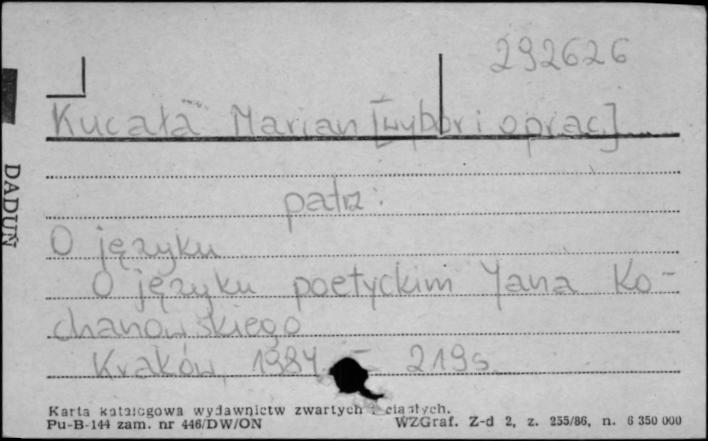 292626
Kucała Marian [wybór i oprac.]
patrz:
O języku
O języku poetyckim Jana Ko-
chanowskiego
Kraków, 1984 - 219 s.
DADUŃ
Karta katalogowa wydawnictw zwartych i ciągłych.
Pu-B-144 zam. nr 446/DW/ON
WZGraf. Z-d 2, z. 255/86, n. 6 350 000